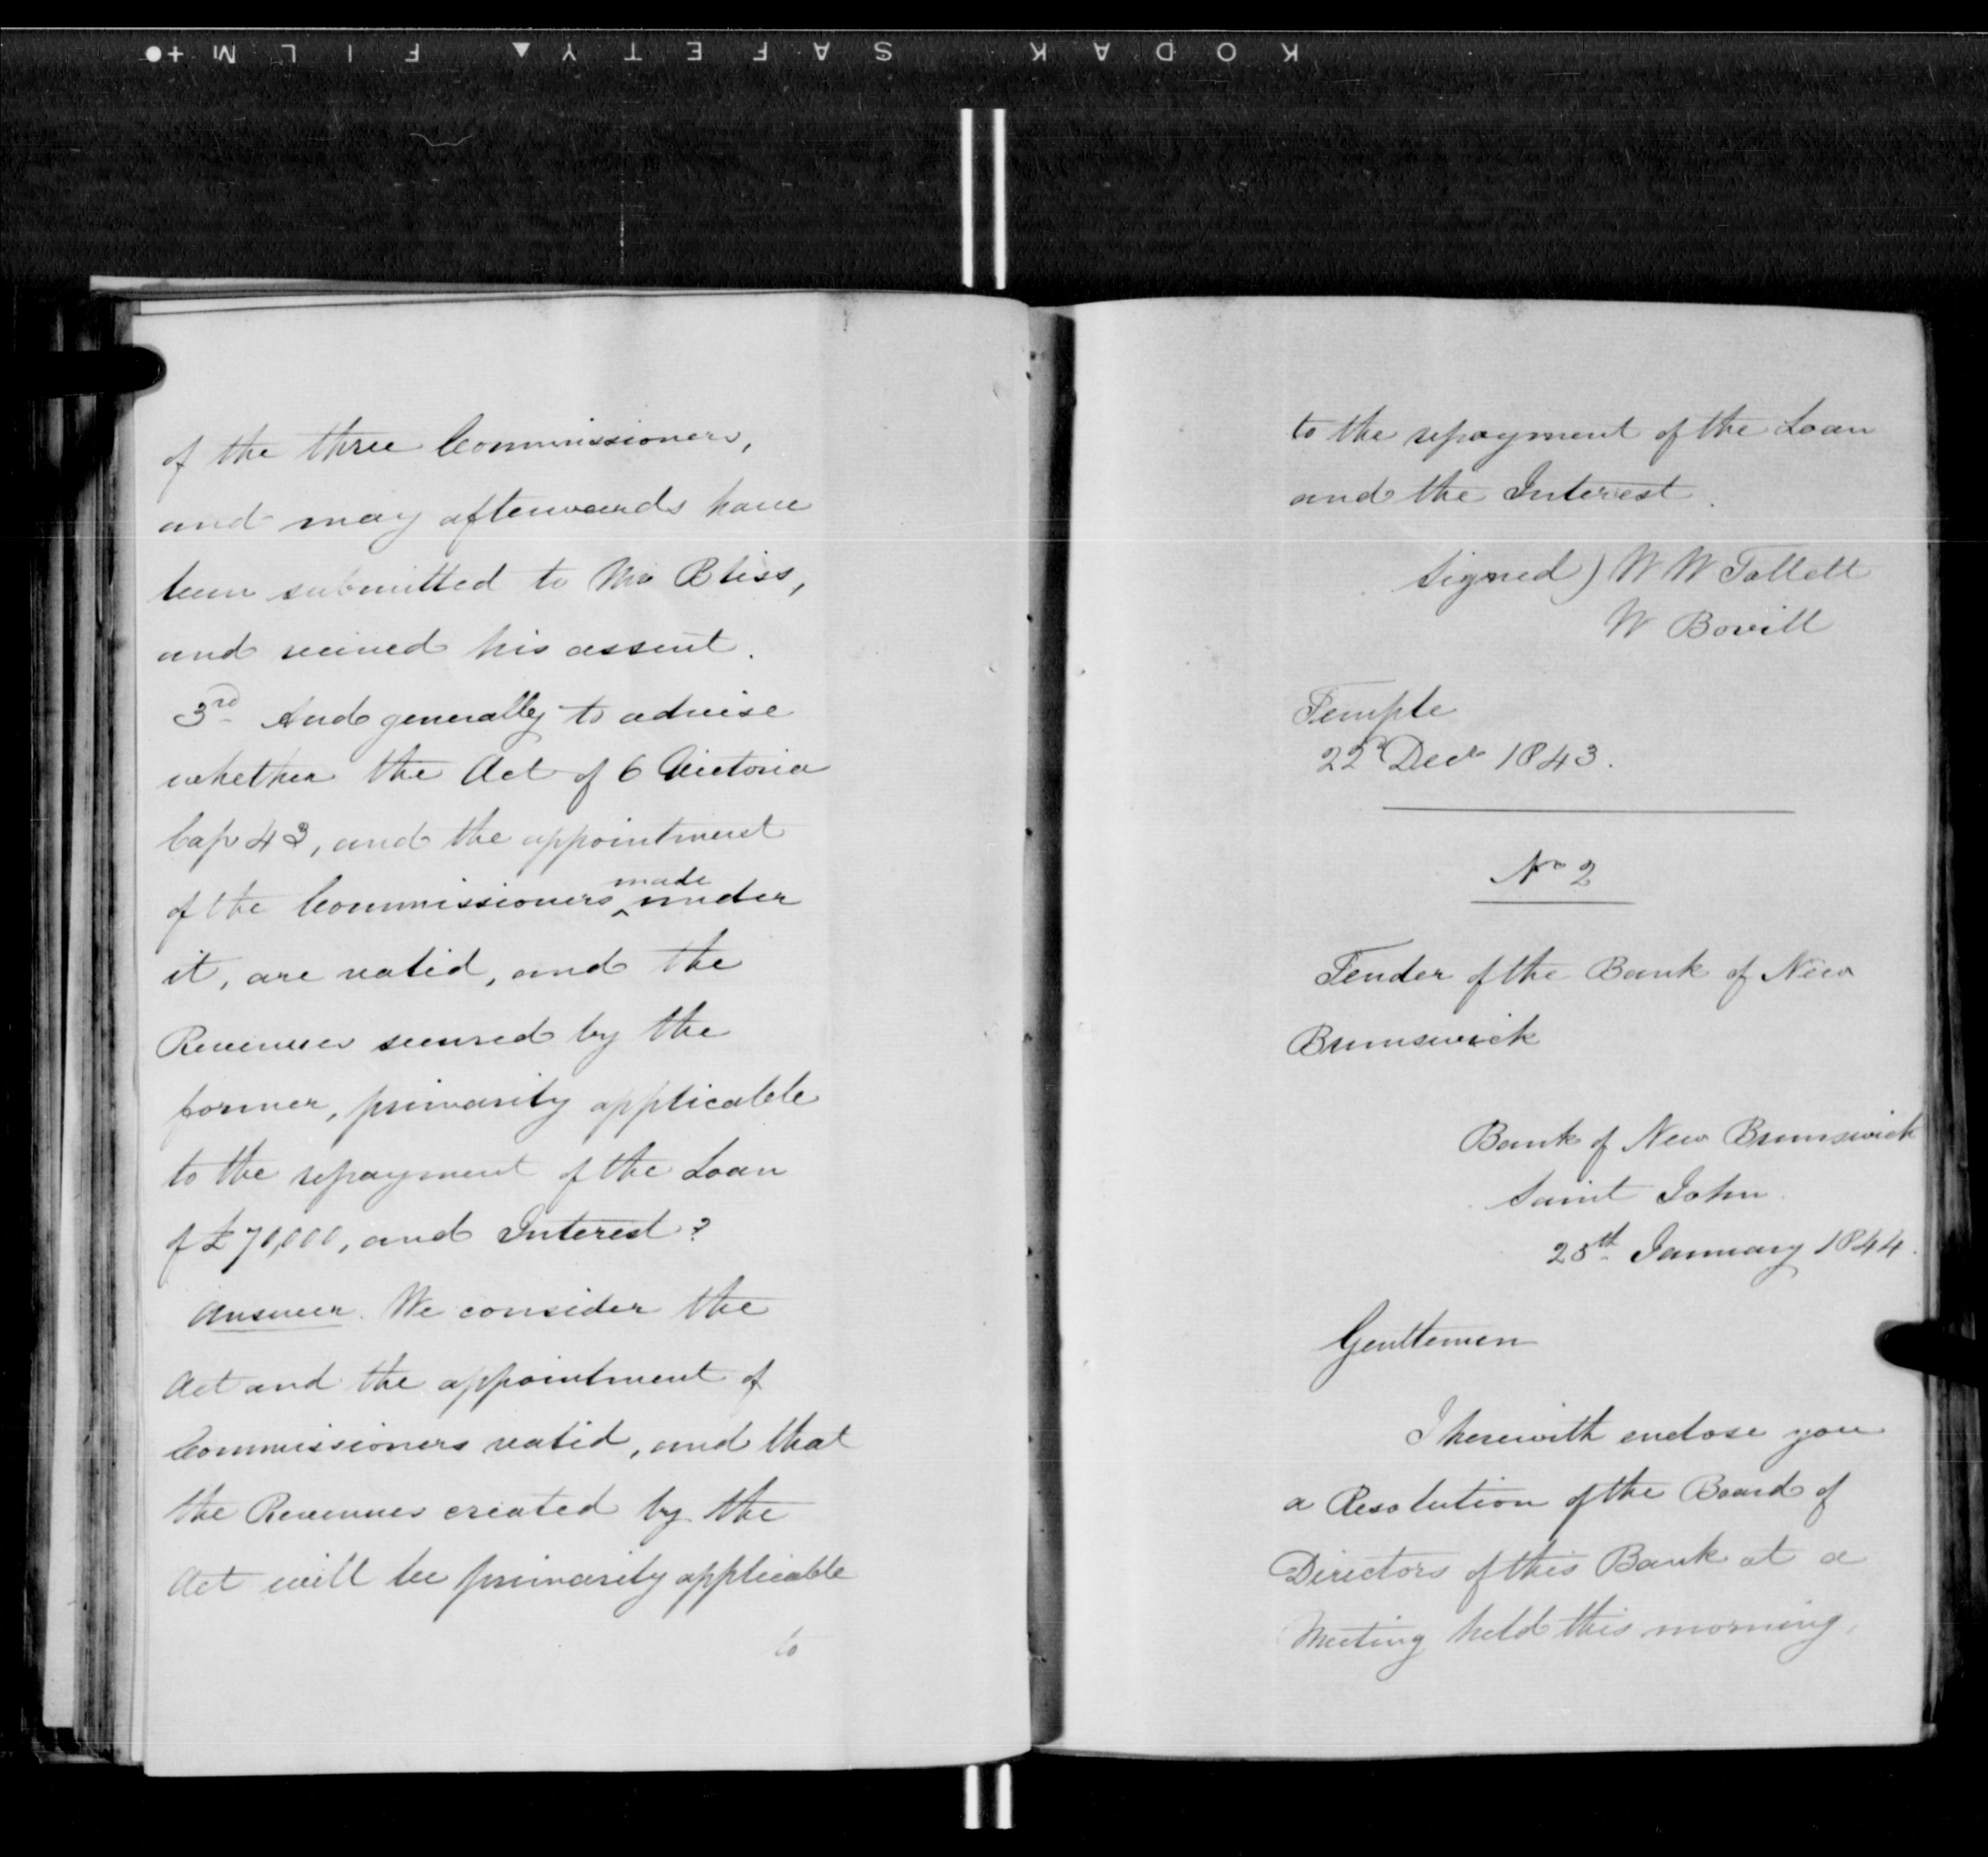 KODAK SAFETY ▲ FILM +●
of the three Commissioners,
and may afterwards have
been submitted to Mr Bliss,
and received his assent.
3rd And generally to advise
whether the Act of 6 Victoria
Cap 43, and the appointment
of the Commissioners made under
it, are valid, and the
Revenues secured by the
former, primarily applicable
to the repayment of the Loan
of £70,000, and Interest?
Answer. We consider the
Act and the appointment of
Commissioners valid, and that
the Revenues created by the
Act will be primarily applicable
to
to the repayment of the Loan
and the Interest.
Signed) W W Follett
W Bovill
Temple
22d Decr 1843.
No 2
Tender of the Bank of New
Brunswick
Bank of New Brunswick
Saint John
25th January 1844.
Gentlemen
I herewith enclose you
a Resolution of the Board of
Directors of this Bank at a
Meeting held this morning,